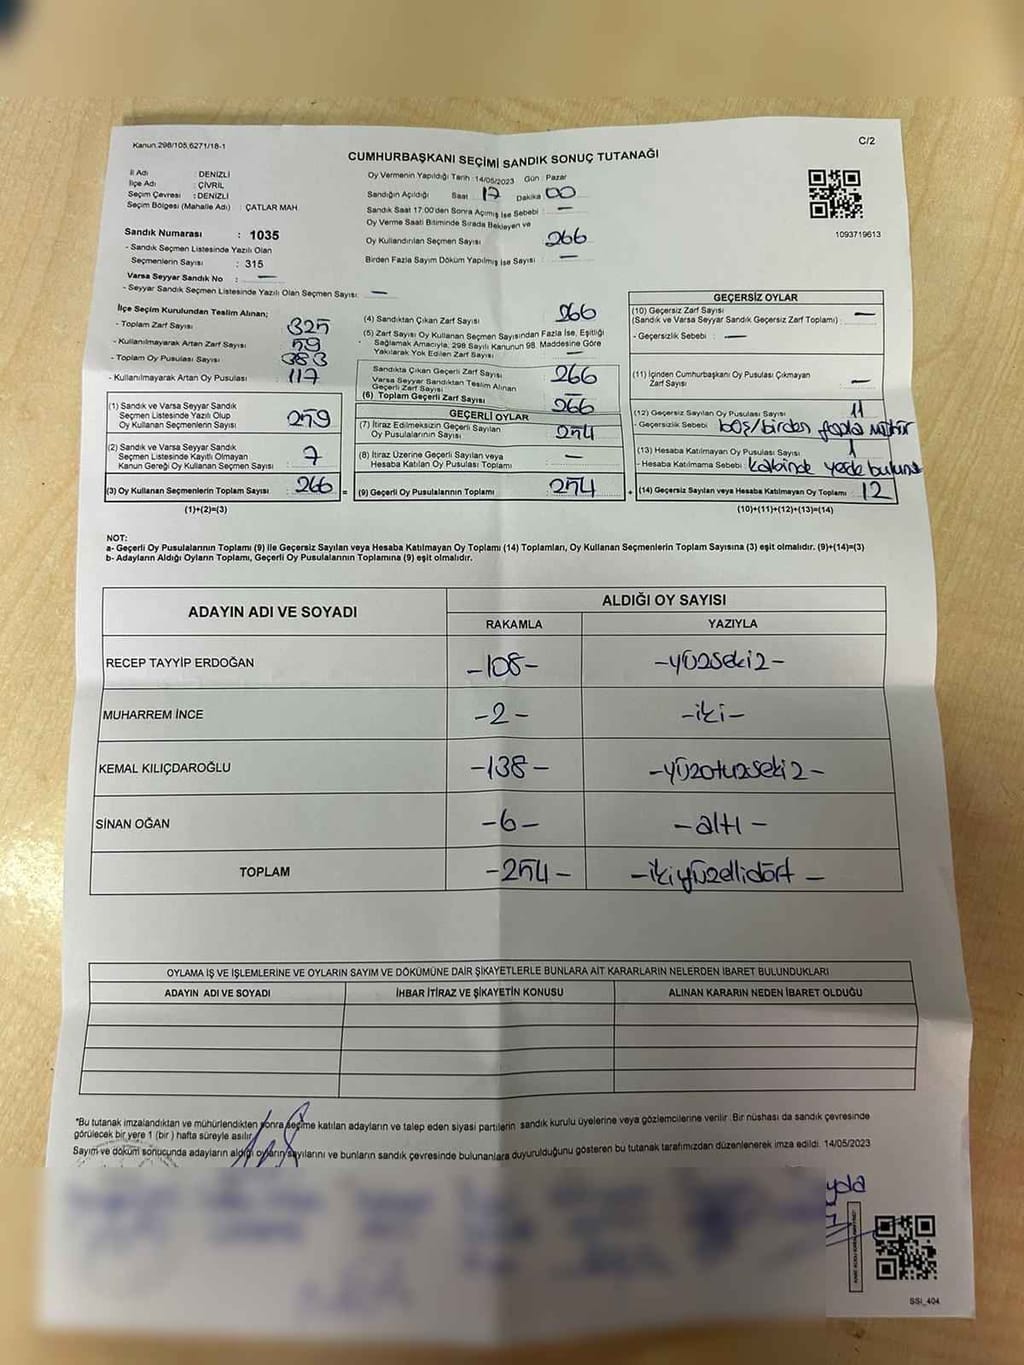 Kanun.298/105,6271/18-1
C/2
CUMHURBAŞKANI SEÇİMİ SANDIK SONUÇ TUTANAĞI
İl Adı : DENİZLİ
İlçe Adı : ÇİVRİL
Seçim Çevresi : DENİZLİ
Seçim Bölgesi (Mahalle Adı) : ÇATLAR MAH.
Sandık Numarası : 1035
- Sandık Seçmen Listesinde Yazılı Olan
Seçmenlerin Sayısı : 315
Varsa Seyyar Sandık No : —
- Seyyar Sandık Seçmen Listesinde Yazılı Olan Seçmen Sayısı: —
Oy Vermenin Yapıldığı Tarih :14/05/2023 Gün : Pazar
Sandığın Açıldığı Saat 17 Dakika 00
Sandık Saat 17.00'den Sonra Açılmış İse Sebebi —
Oy Verme Saati Bitiminde Sırada Bekleyen ve
Oy Kullandırılan Seçmen Sayısı 266
Birden Fazla Sayım Döküm Yapılmış İse Sayısı —
1093719613
İlçe Seçim Kurulundan Teslim Alınan;
- Toplam Zarf Sayısı 325
- Kullanılmayarak Artan Zarf Sayısı 59
- Toplam Oy Pusulası Sayısı 383
- Kullanılmayarak Artan Oy Pusulası 117
(1) Sandık ve Varsa Seyyar Sandık
Seçmen Listesinde Yazılı Olup
Oy Kullanan Seçmenlerin Sayısı 259
(2) Sandık ve Varsa Seyyar Sandık
Seçmen Listesinde Kayıtlı Olmayan
Kanun Gereği Oy Kullanan Seçmen Sayısı 7
(3) Oy Kullanan Seçmenlerin Toplam Sayısı 266 =
(1)+(2)=(3)
(4) Sandıktan Çıkan Zarf Sayısı 266
(5) Zarf Sayısı Oy Kullanan Seçmen Sayısından Fazla İse, Eşitliği
Sağlamak Amacıyla, 298 Sayılı Kanunun 98. Maddesine Göre
Yakılarak Yok Edilen Zarf Sayısı —
Sandıkta Çıkan Geçerli Zarf Sayısı 266
Varsa Seyyar Sandıktan Teslim Alınan
Geçerli Zarf Sayısı —
(6) Toplam Geçerli Zarf Sayısı 266
GEÇERLİ OYLAR
(7) İtiraz Edilmeksizin Geçerli Sayılan
Oy Pusulalarının Sayısı 254
(8) İtiraz Üzerine Geçerli Sayılan veya
Hesaba Katılan Oy Pusulası Toplamı —
(9) Geçerli Oy Pusulalarının Toplamı 254 +
GEÇERSİZ OYLAR
(10) Geçersiz Zarf Sayısı
(Sandık ve Varsa Seyyar Sandık Geçersiz Zarf Toplamı) —
- Geçersizlik Sebebi : —
(11) İçinden Cumhurbaşkanı Oy Pusulası Çıkmayan
Zarf Sayısı —
(12) Geçersiz Sayılan Oy Pusulası Sayısı 11
- Geçersizlik Sebebi boş/birden fazla mühür
(13) Hesaba Katılmayan Oy Pusulası Sayısı 1
- Hesaba Katılmama Sebebi kabinde yerde bulunan
(14) Geçersiz Sayılan veya Hesaba Katılmayan Oy Toplamı 12
(10)+(11)+(12)+(13)=(14)
NOT:
a- Geçerli Oy Pusulalarının Toplamı (9) ile Geçersiz Sayılan veya Hesaba Katılmayan Oy Toplamı (14) Toplamları, Oy Kullanan Seçmenlerin Toplam Sayısına (3) eşit olmalıdır. (9)+(14)=(3)
b- Adayların Aldığı Oyların Toplamı, Geçerli Oy Pusulalarının Toplamına (9) eşit olmalıdır.
ADAYIN ADI VE SOYADI
ALDIĞI OY SAYISI
RAKAMLA YAZIYLA
RECEP TAYYİP ERDOĞAN -108- -yüzsekiz-
MUHARREM İNCE -2- -iki-
KEMAL KILIÇDAROĞLU -138- -yüzotuzsekiz-
SİNAN OĞAN -6- -altı-
TOPLAM -254- -ikiyüzellidört-
OYLAMA İŞ VE İŞLEMLERİNE VE OYLARIN SAYIM VE DÖKÜMÜNE DAİR ŞİKAYETLERLE BUNLARA AİT KARARLARIN NELERDEN İBARET BULUNDUKLARI
ADAYIN ADI VE SOYADI İHBAR İTİRAZ VE ŞİKAYETİN KONUSU ALINAN KARARIN NEDEN İBARET OLDUĞU
*Bu tutanak imzalandıktan ve mühürlendikten sonra seçime katılan adayların ve talep eden siyasi partilerin sandık kurulu üyelerine veya gözlemcilerine verilir. Bir nüshası da sandık çevresinde
görülecek bir yere 1 (bir) hafta süreyle asılır.
Sayım ve döküm sonucunda adayların aldığı oyların sayılarını ve bunların sandık çevresinde bulunanlara duyurulduğunu gösteren bu tutanak tarafımızdan düzenlenerek imza edildi. 14/05/2023
SSI_404